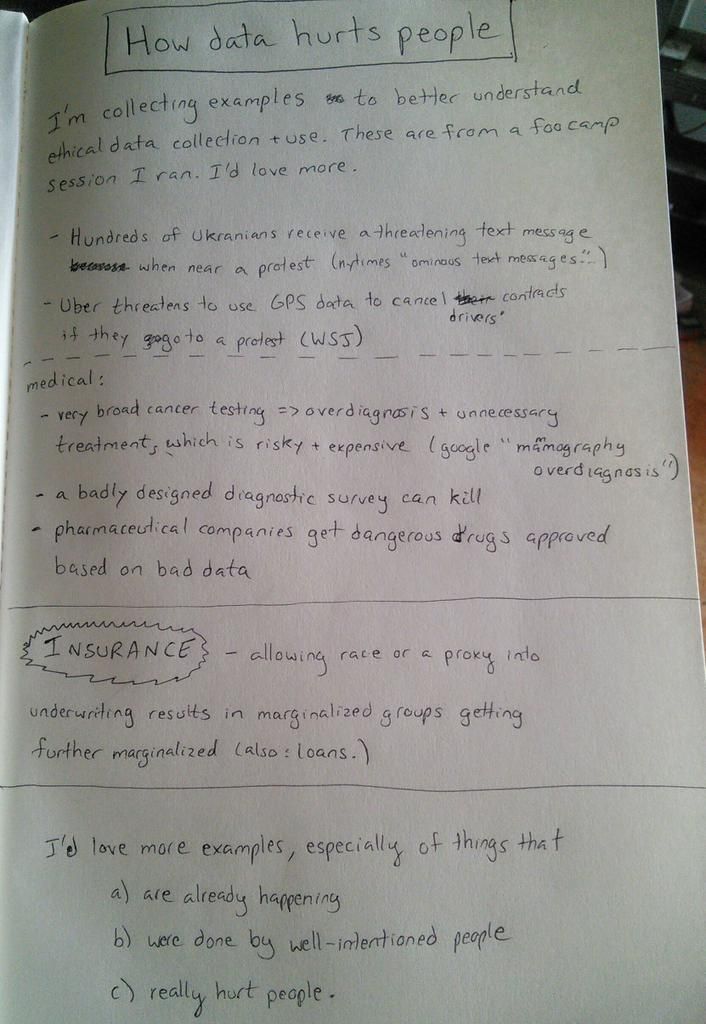 How data hurts people
I'm collecting examples to better understand
ethical data collection + use. These are from a foo camp
session I ran. I'd love more.
- Hundreds of Ukranians receive a threatening text message
when near a protest (nytimes "ominous text messages"...)
- Uber threatens to use GPS data to cancel drivers' contracts
if they go to a protest (WSJ)
medical:
- very broad cancer testing => overdiagnosis + unnecessary
treatment, which is risky + expensive (google "mamography
overdiagnosis")
- a badly designed diagnostic survey can kill
- pharmaceutical companies get dangerous drugs approved
based on bad data
INSURANCE - allowing race or a proxy into
underwriting results in marginalized groups getting
further marginalized (also: loans.)
I'd love more examples, especially of things that
a) are already happening
b) were done by well-intentioned people
c) really hurt people.